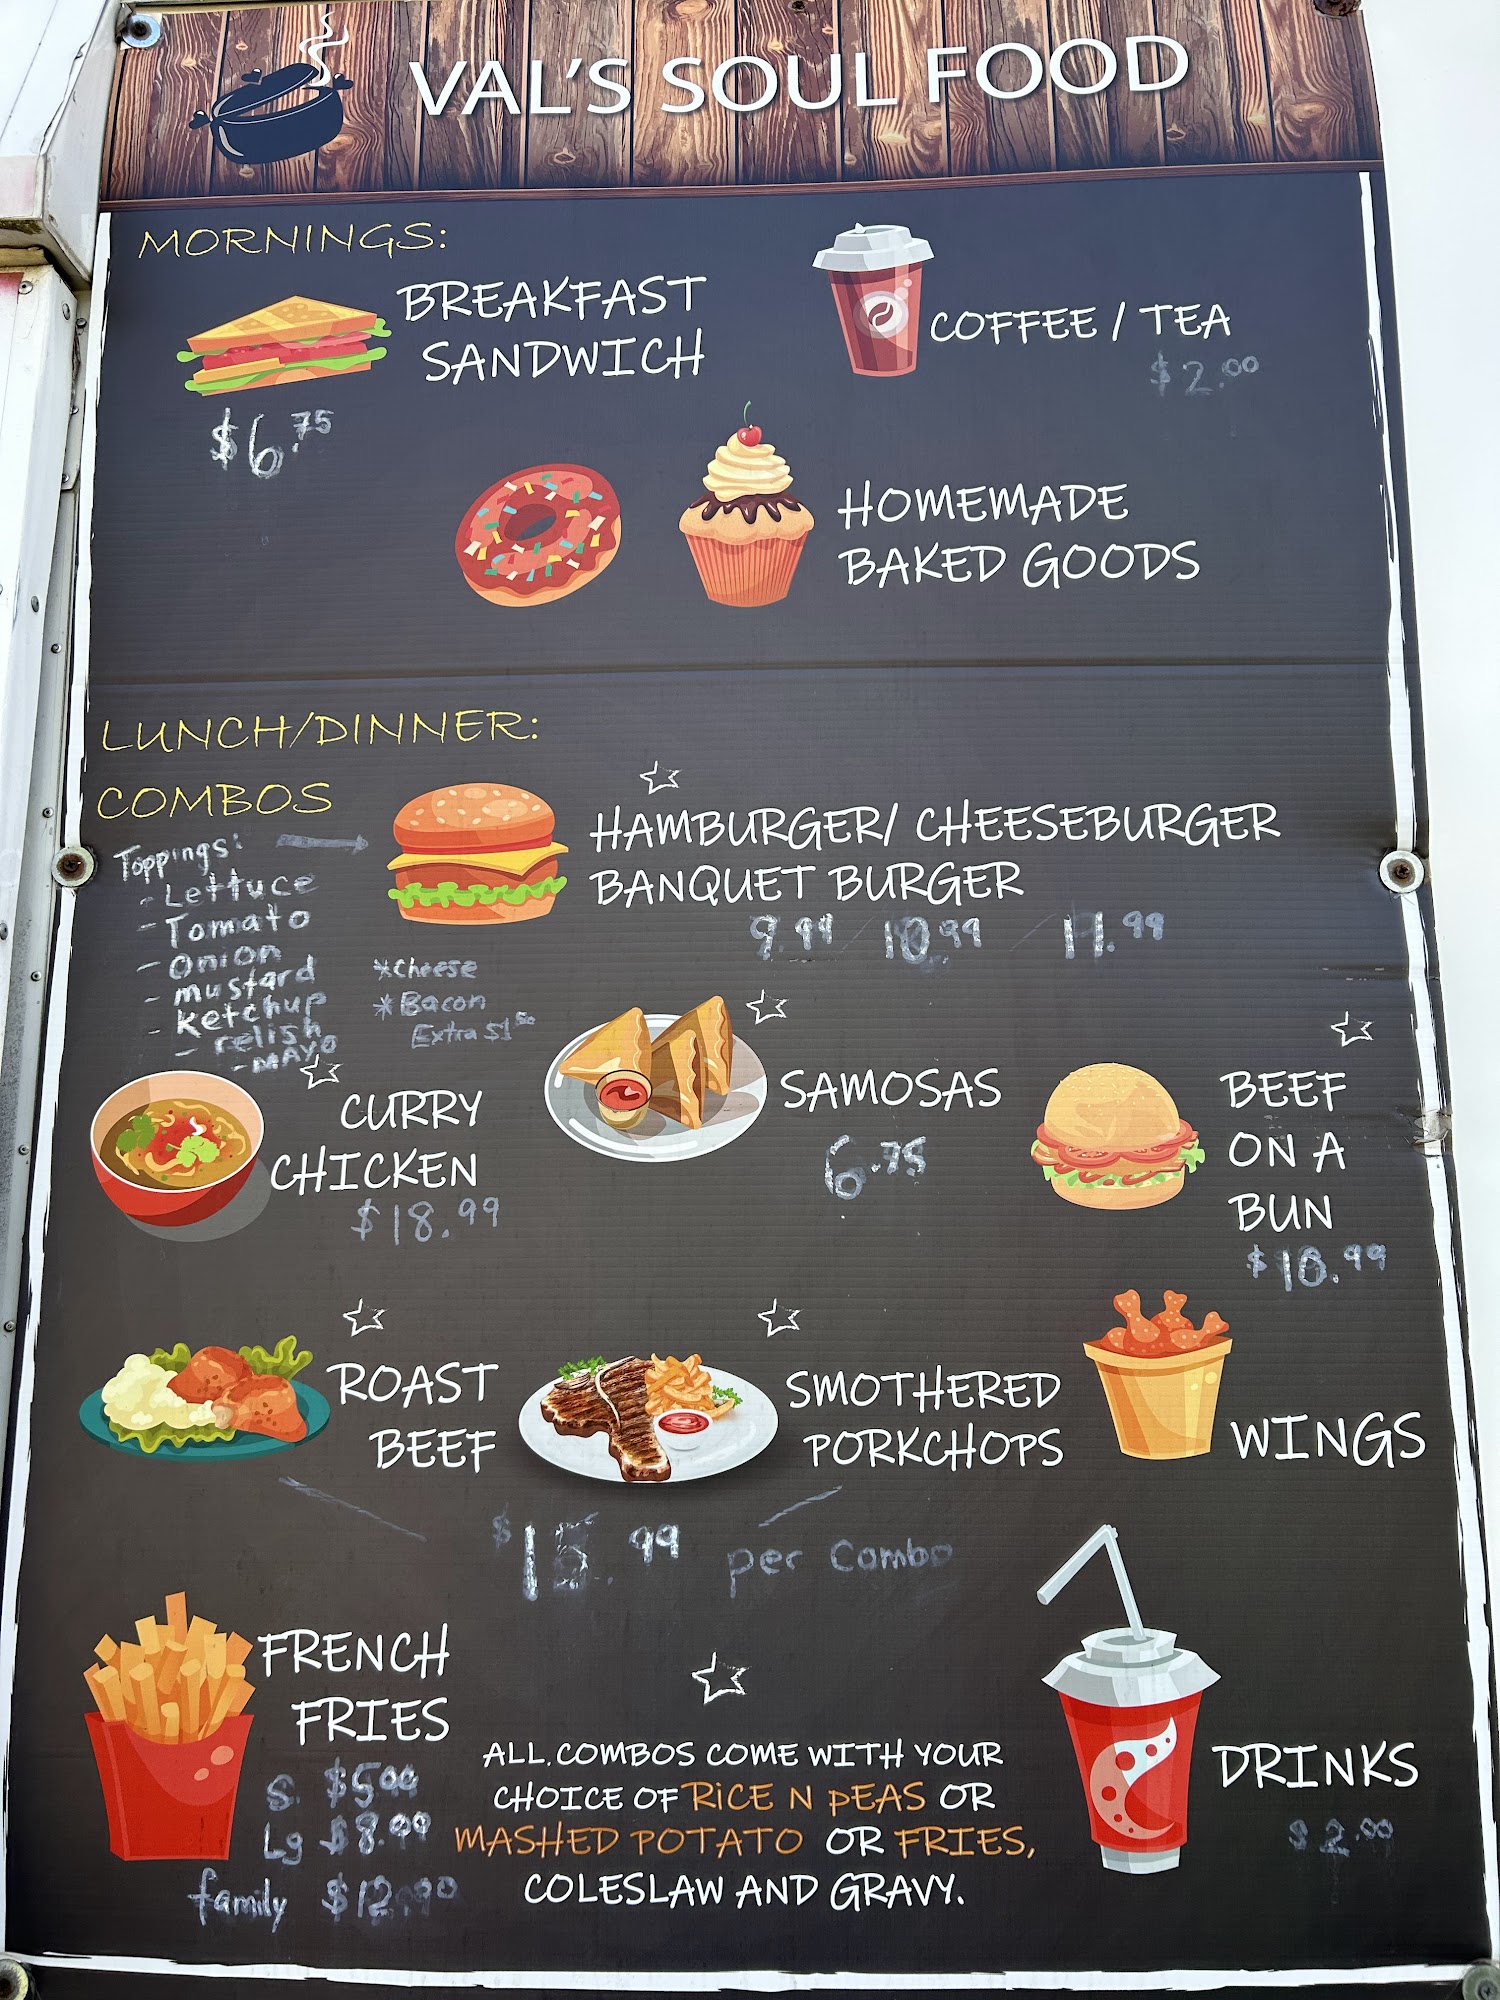 VAL'S SOUL FOOD
MORNINGS:
BREAKFAST
SANDWICH
$6.75
COFFEE / TEA
$2.00
HOMEMADE
BAKED GOODS
LUNCH/DINNER:
COMBOS
Toppings:
- Lettuce
- Tomato
- Onion
- mustard
- Ketchup
- relish
- MAYO
*Cheese
*Bacon
Extra $1.50
HAMBURGER/ CHEESEBURGER
BANQUET BURGER
9.99 / 10.99 / 11.99
CURRY
CHICKEN
$18.99
SAMOSAS
6.75
BEEF
ON A
BUN
$10.99
ROAST
BEEF
SMOTHERED
PORKCHOPS
$15.99 per Combo
WINGS
FRENCH
FRIES
S. $5.00
Lg $8.99
family $12.
ALL COMBOS COME WITH YOUR
CHOICE OF RICE N PEAS OR
MASHED POTATO OR FRIES,
COLESLAW AND GRAVY.
DRINKS
$2.00